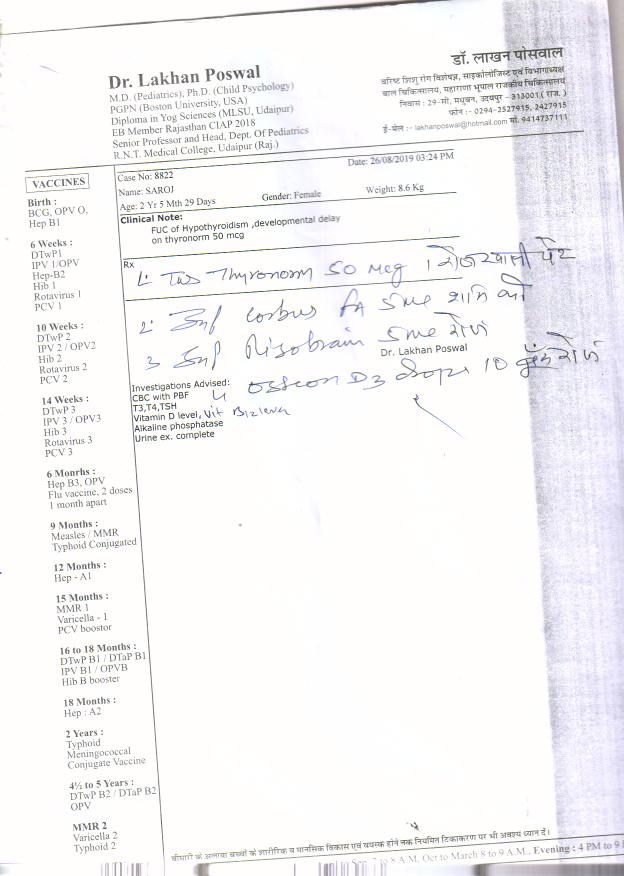 Dr. Lakhan Poswal
M.D. (Pediatrics), Ph.D. (Child Psychology)
PGPN (Boston University, USA)
Diploma in Yog Sciences (MLSU, Udaipur)
EB Member Rajasthan CIAP 2018
Senior Professor and Head, Dept. Of Pediatrics
R.N.T. Medical College, Udaipur (Raj.)
डॉ. लाखन पोसवाल
वरिष्ठ शिशु रोग विशेषज्ञ, साइकोलोजिस्ट एवं विभागाध्यक्ष
बाल चिकित्सालय, महाराणा भूपाल राजकीय चिकित्सालय
निवास : 29-सी, मधुबन, उदयपुर - 313001 (राज.)
फोन :- 0294-2527915, 2427915
ई-मेल :- lakhanposwal@hotmail.com मो. 9414737111
Case No: 8822
Date: 26/08/2019 03:24 PM
Name: SAROJ
Age: 2 Yr 5 Mth 29 Days
Gender: Female
Weight: 8.6 Kg
Clinical Note:
FUC of Hypothyroidism ,developmental delay
on thyronorm 50 mcg
Rx
1. Tab Thyronorm 50 mcg 1 रोज खाली पेट
2. 5ml
3 5ml रोज
Dr. Lakhan Poswal
4 Osseon D3 drops 10 बूँद रोज
Investigations Advised:
CBC with PBF
T3,T4,TSH
Vitamin D level, Vit B12 level
Alkaline phosphatase
Urine ex. complete
VACCINES
Birth :
BCG, OPV O,
Hep B1
6 Weeks :
DTwP1
IPV 1/OPV
Hep-B2
Hib 1
Rotavirus 1
PCV 1
10 Weeks :
DTwP 2
IPV 2 / OPV2
Hib 2
Rotavirus 2
PCV 2
14 Weeks :
DTwP 3
IPV 3 / OPV3
Hib 3
Rotavirus 3
PCV 3
6 Monrhs :
Hep B3, OPV
Flu vaccine, 2 doses
1 month apart
9 Months :
Measles / MMR
Typhoid Conjugated
12 Months :
Hep - A1
15 Months :
MMR 1
Varicella - 1
PCV boostor
16 to 18 Months :
DTwP B1 / DTaP B1
IPV B1 / OPVB
Hib B booster
18 Months :
Hep : A2
2 Years :
Typhoid
Meningococcal
Conjugate Vaccine
4½ to 5 Years :
DTwP B2 / DTaP B2
OPV
MMR 2
Varicella 2
Typhoid 2
बीमारी के अलावा बच्चों के शारीरिक व मानसिक विकास एवं वयस्क होने तक नियमित टिकाकरण पर भी अवश्य ध्यान दें।
to 8 A.M. Oct to March 8 to 9 A.M., Evening : 4 PM to 9